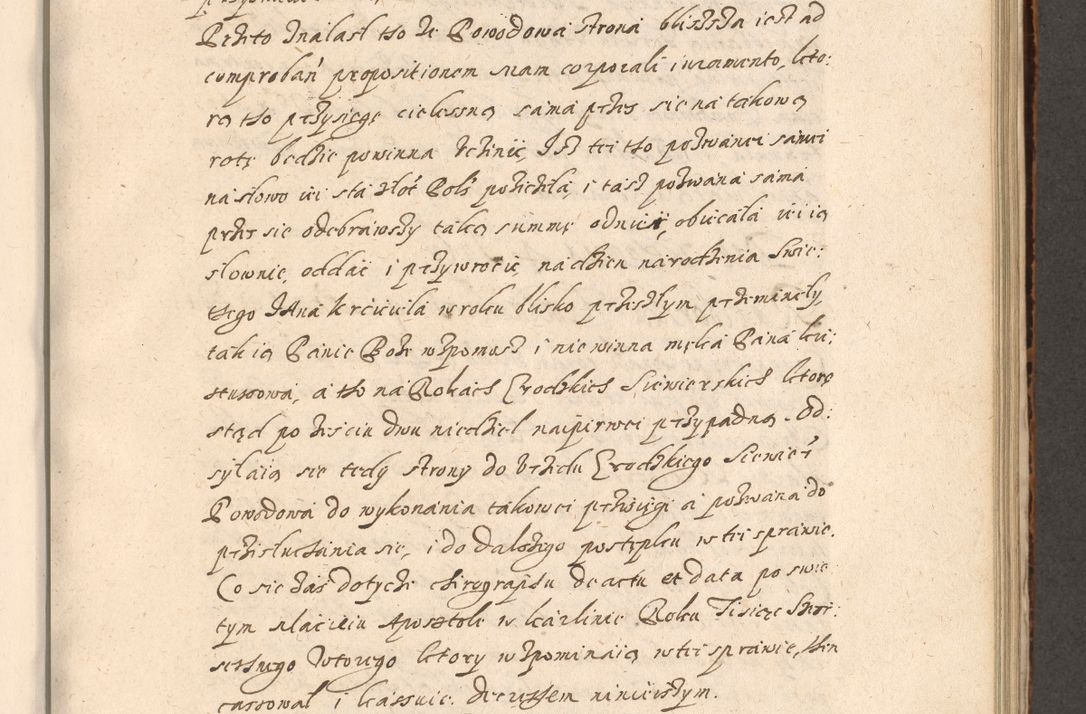 Przto Inalasl tho że Powodowa strona bliższa iest ad
comprobań propositionem suam corporali iuramento, kto:
rą tho przysięgę cielesną sama przes się na takową
rotę będzie powinna vczinić, Isz tei tho pozwanei samei
na słowo iei sta złót Pols pozicziła, i tasz pozwana sama
przes się odebrawszy taką summę od niei, obiecała iei ią
słownie, oddać i przywrocić na dzien narodzenia Swie:
thego Jana krciciela w roku blisko przeszłym przeminęły,
tak ią Panie Boże wspomosz i niewinna męka Pana kri:
stussowa, a tho na Rokach Grodzkich Siewierskich ktore
stąd po ześciu dwu niedziel naipirwei przypadną. Od:
syłaią się tedy strony do vrzędu Grodzkiego Siewie
Powodowa do wykonania takowei przisięgi a pozwana do
prżisłuchania się, i do dalszego postępku w tei sprawie.
Co się zas dotycze chirographu de actu et data po swię
tym Macieiu Apostole w karlinie Roku Tisiąc Szei
sethnego wtorego ktory wspominaią w tei sprawie, then
cassował i kassuie. Decrethem ninieiszym.